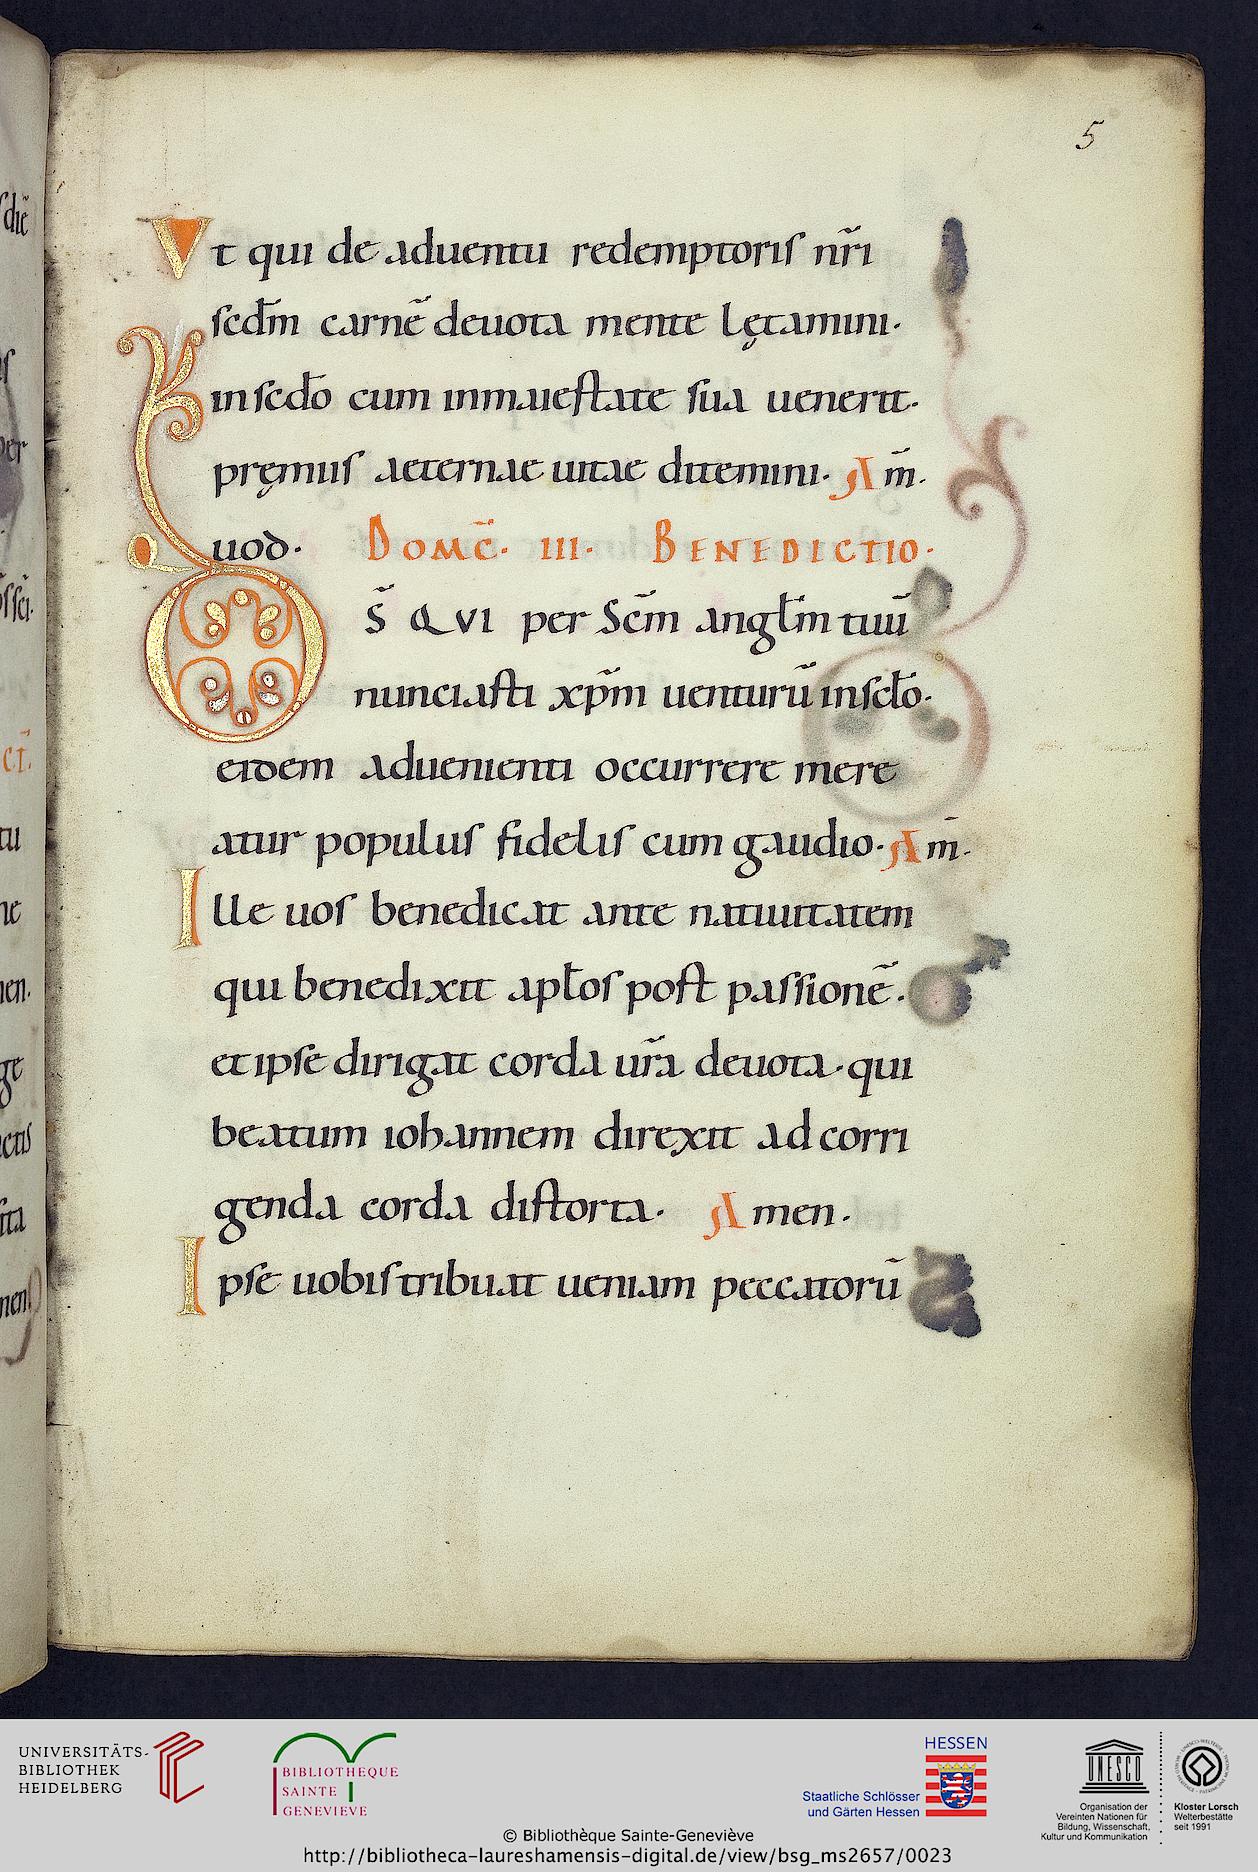 5
Vt qui de aduentu redemptoris nr̃i
scdm̄ carnē deuota mente lętamini·
in scdo̅ cum inmaiestate sua uenerit·
pręmiis aeternae uitae ditemini· Am̄·
uod· Domc̄· III· BENEDICTIO·
D̄S QVI per Scm̄ angłm tuū
nunciasti xp̄m uenturū inscło·
eidem aduenienti occurrere mere
atur populus fidelis cum gaudio· Am̄·
Ille uos benedicat ante natiuitatem
qui benedixit apłos post passionē·
et ipse dirigat corda ur̄a deuota· qui
beatum iohannem direxit ad corri
genda corda distorta· Amen·
Ipse uobis tribuat ueniam peccatorū
UNIVERSITÄTS-
BIBLIOTHEK
HEIDELBERG
BIBLIOTHEQUE
SAINTE
GENEVIEVE
HESSEN
Staatliche Schlösser
und Gärten Hessen
UNESCO
Organisation der
Vereinten Nationen für
Bildung, Wissenschaft,
Kultur und Kommunikation
Kloster Lorsch
Welterbestätte
seit 1991
© Bibliothèque Sainte-Geneviève
http://bibliotheca-laureshamensis-digital.de/view/bsg_ms2657/0023